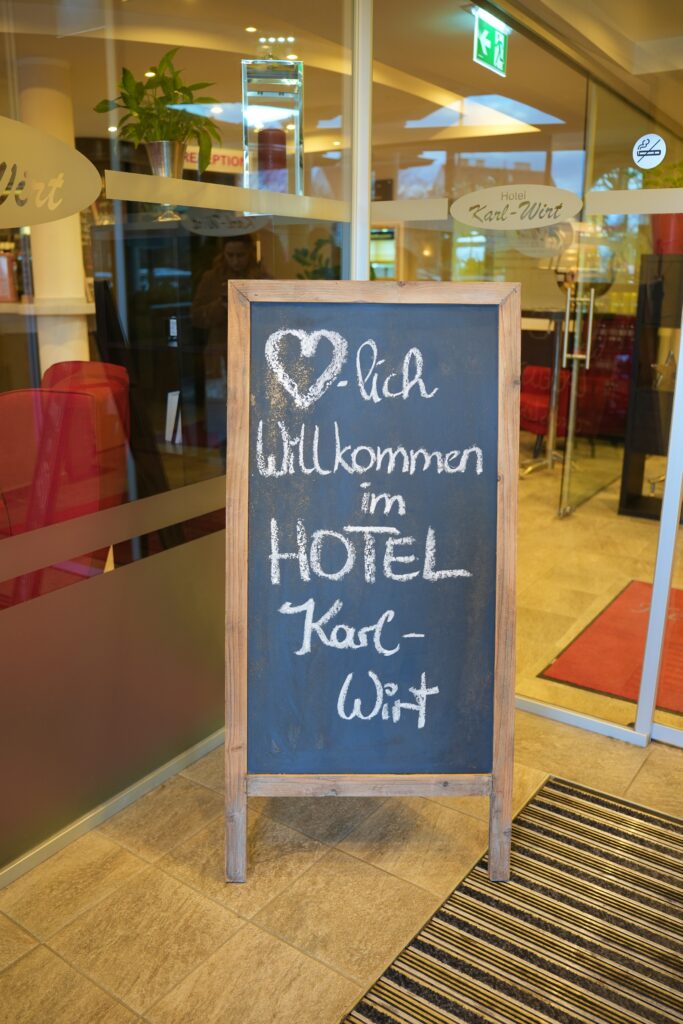 RECEPTION
Wirt
Hotel
Karl-Wirt
♥-lich
Willkommen
im
HOTEL
Karl-
Wirt